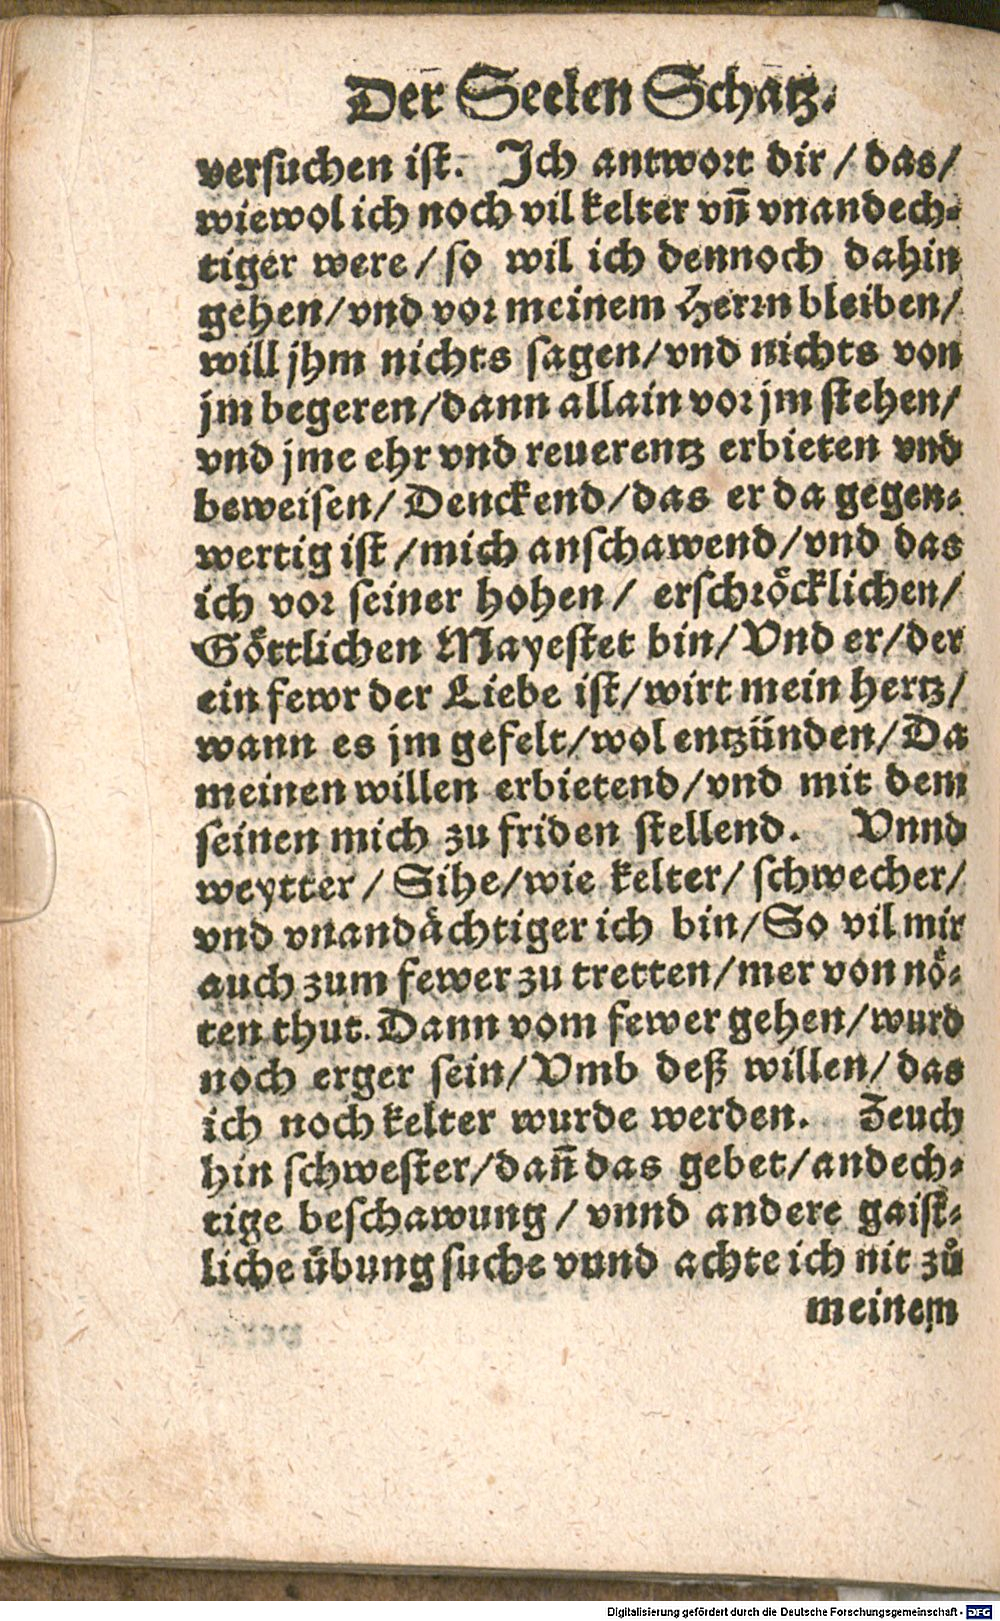 Der Seelen Schatz.
versuchen ist. Ich antwort dir / das /
wiewol ich noch vil kelter vñ vnandech⸗
tiger were / so wil ich dennoch dahin
gehen / vnd vor meinem Herrn bleiben /
will jhm nichts sagen / vnd nichts von
jm begeren / dann allain vor jm stehen /
vnd jme ehr vnd reuerentz erbieten vnd
beweisen / Denckend / das er da gegen⸗
wertig ist / mich anschawend / vnd das
ich vor seiner hohen / erschröcklichen /
Göttlichen Mayestet bin / Vnd er / der
ein fewr der Liebe ist / wirt mein hertz /
wann es jm gefelt / wol entzünden / Da
meinen willen erbietend / vnd mit dem
seinen mich zu friden stellend. Vnnd
weytter / Sihe / wie kelter / schwecher /
vnd vnandächtiger ich bin / So vil mir
auch zum fewer zu tretten / mer von nö⸗
ten thut. Dann vom fewer gehen / wurd
noch erger sein / Vmb deß willen / das
ich noch kelter wurde werden. Zeuch
hin schwester / dañ das gebet / andech⸗
tige beschawung / vnnd andere gaist⸗
liche übung suche vnnd achte ich nit zů
meinem
Digitalisierung gefördert durch die Deutsche Forschungsgemeinschaft - DFG